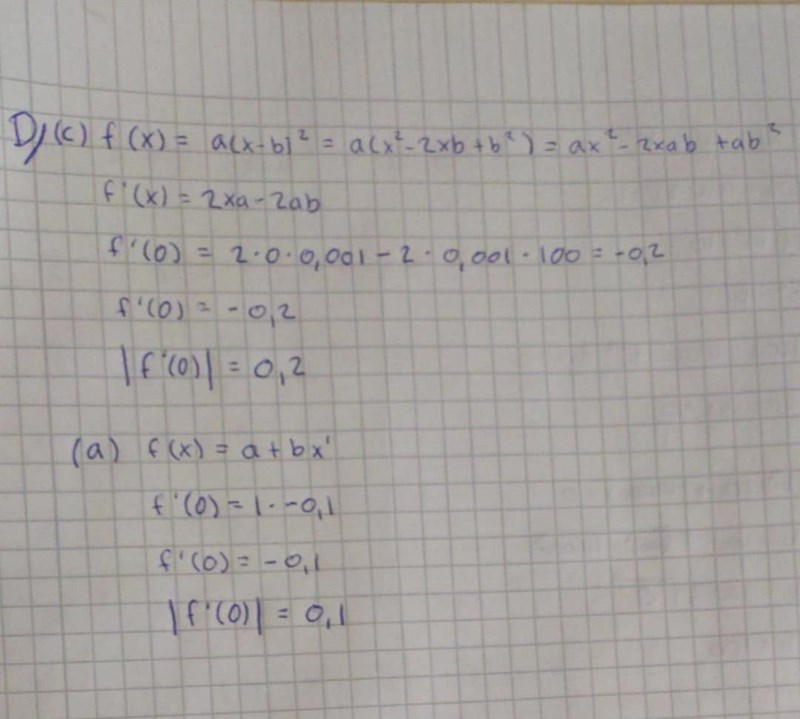 D/(c) f(x) = a(x-b)² = a(x²-2xb+b²) = ax²-2xab +ab²
f'(x) = 2xa-2ab
f'(0) = 2·0·0,001-2·0,001·100=-0,2
f'(0) = -0,2
|f'(0)| = 0,2
(a) f(x) = a+bx¹
f'(0)=1·-0,1
f'(0)=-0,1
|f'(0)| = 0,1